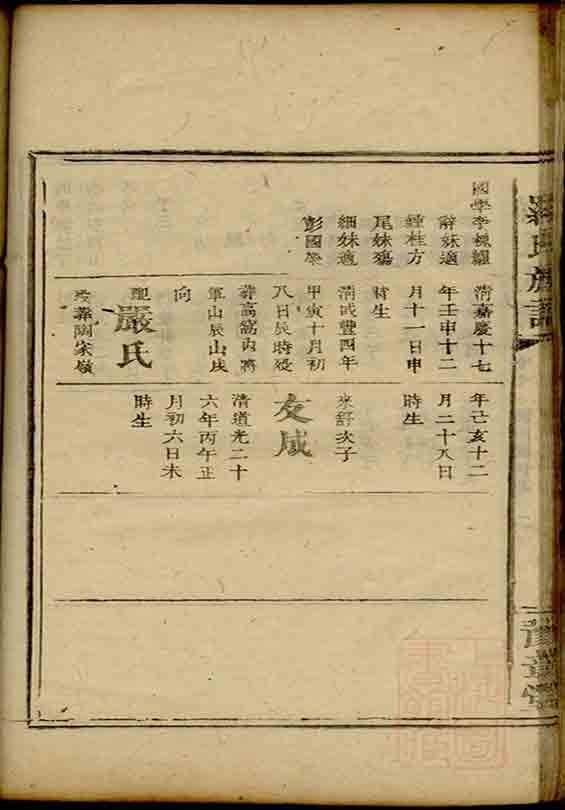 羅氏族譜
豫章堂
國學李標躍
辭妹適
鍾桂方
尾妹殤
細妹適
彭國學
清嘉慶十七
年壬申十二
月十一日申
時生
清咸豐四年
甲寅十月初
八日辰時歿
葬高窩內將
軍山辰山戌
向
配
嚴氏
歿葬陶家嶺
年己亥十二
月二十八日
時生
次子
友成
清道光二十
六年丙午正
月初六日未
時生